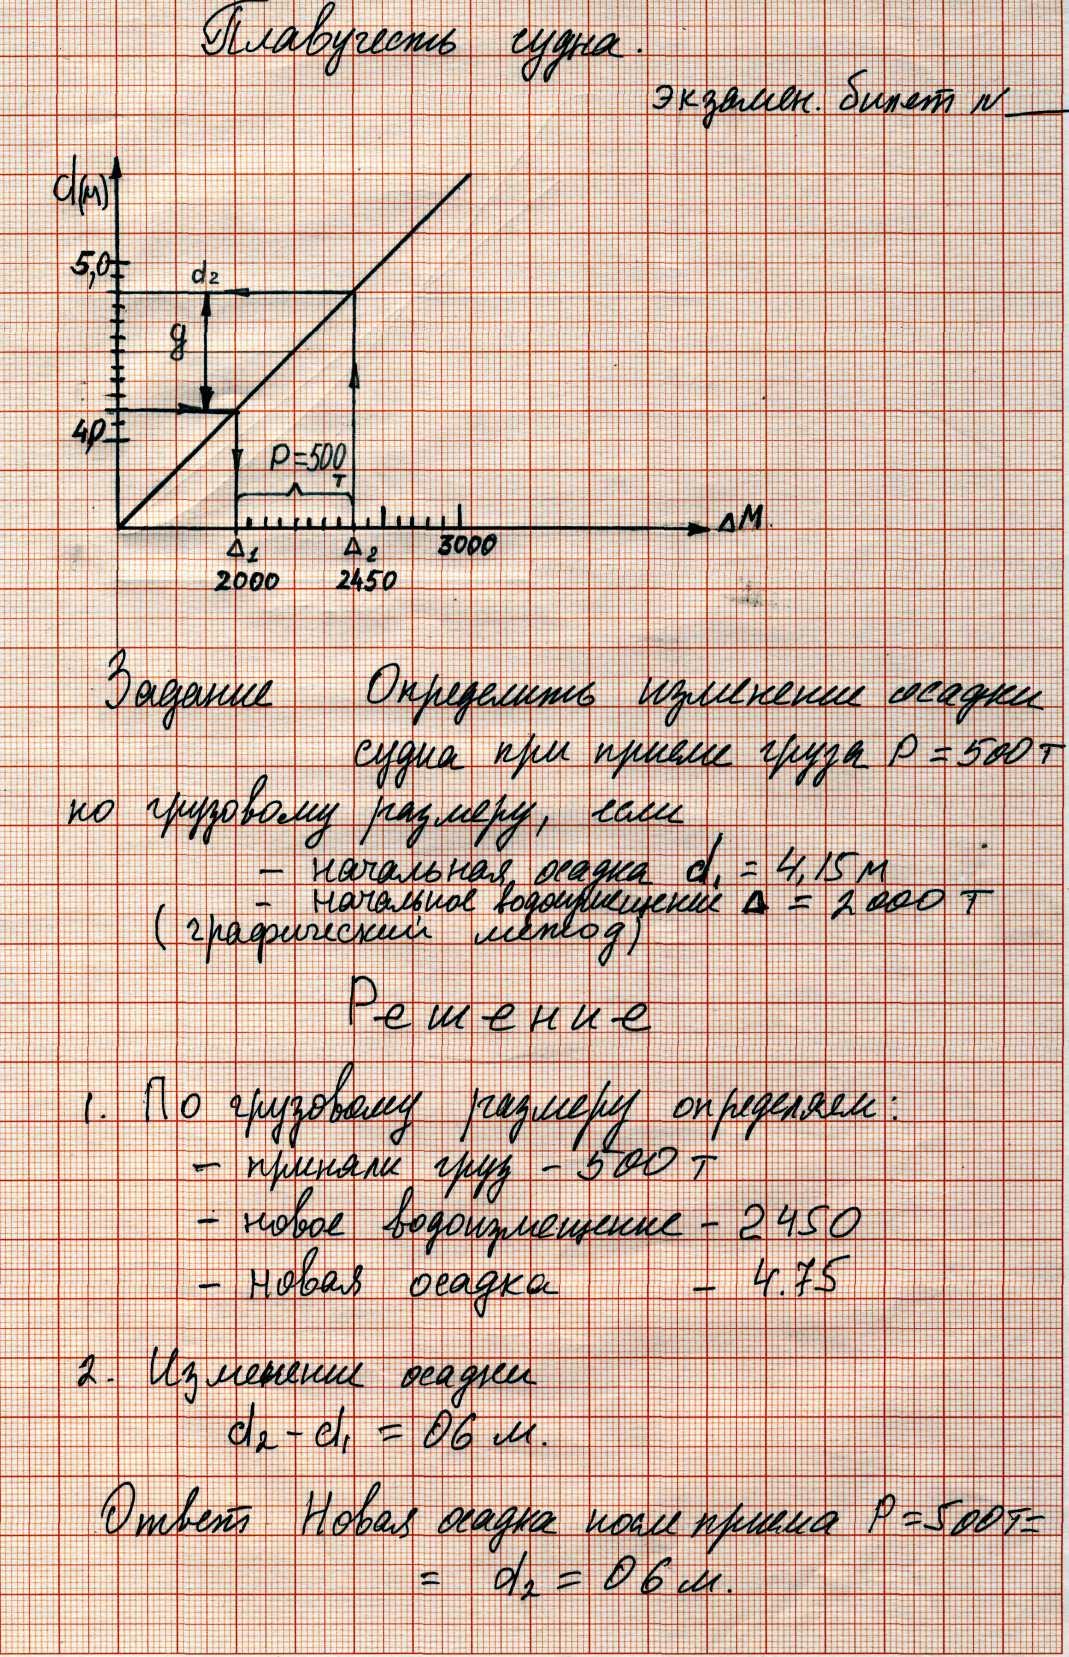 Плавучесть судна.
Экзамен. билет N
d(м)
5,0
d2
g
4,0
P=500
т
ΔМ
Δ1
Δ2
3000
2000
2450
Задание Определить изменение осадки
судна при приеме груза P = 500 т
по грузовому размеру, если
- начальная осадка d1 = 4,15 м
- начальное водоизмещение Δ = 2000 т
(графический метод)
Решение
1. По грузовому размеру определяем:
- приняли груз - 500 т
- новое водоизмещение - 2450
- новая осадка - 4.75
2. Изменение осадки
d2 - d1 = 06 м.
Ответ Новая осадка после приема P = 500т =
= d2 = 06 м.